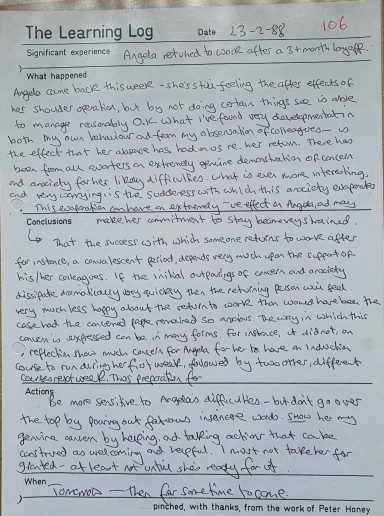 106
The Learning Log Date 23-2-88
Significant experience Angela returned to work after a 3+ month layoff.
What happened
Angela came back this week - she's still feeling the after effects of
her shoulder operation, but by not doing certain things she is able
to manage reasonably O.K. What I've found very developmental in
both my own behaviour and from my observation of colleagues - is
the effect that her absence has had on us re. her return. There has
been from all quarters an extremely genuine demonstration of concern
and anxiety for her likely difficulties. What is even more interesting,
and very worrying, is the suddenness with which this anxiety evaporates
This evaporation can have an extremely -ve effect on Angela, and may
Conclusions make her commitment to stay become very strained.
That the success with which someone returns to work after
for instance, a convalescent period, depends very much upon the support of
his/her colleagues. If the initial outpourings of concern and anxiety
dissipate dramatically very quickly then the returning person will feel
very much less happy about the return to work than would have been the
case had the concerned people remained so anxious. The way in which this
concern is expressed can be in many forms. For instance, it did not, on
reflection show much concern for Angela for her to have an Induction
course to run during her first week, followed by two other, different
courses next week. Thus preparation for
Actions
Be more sensitive to Angela's difficulties - but don't go over
the top by pouring out fatuous insincere words. Show her my
genuine concern by helping, and taking action that can be
construed as welcoming and helpful. I must not take her for
granted - at least not until she's ready for it.
When
Tomorrow - then for some time to come.
....pinched, with thanks, from the work of Peter Honey